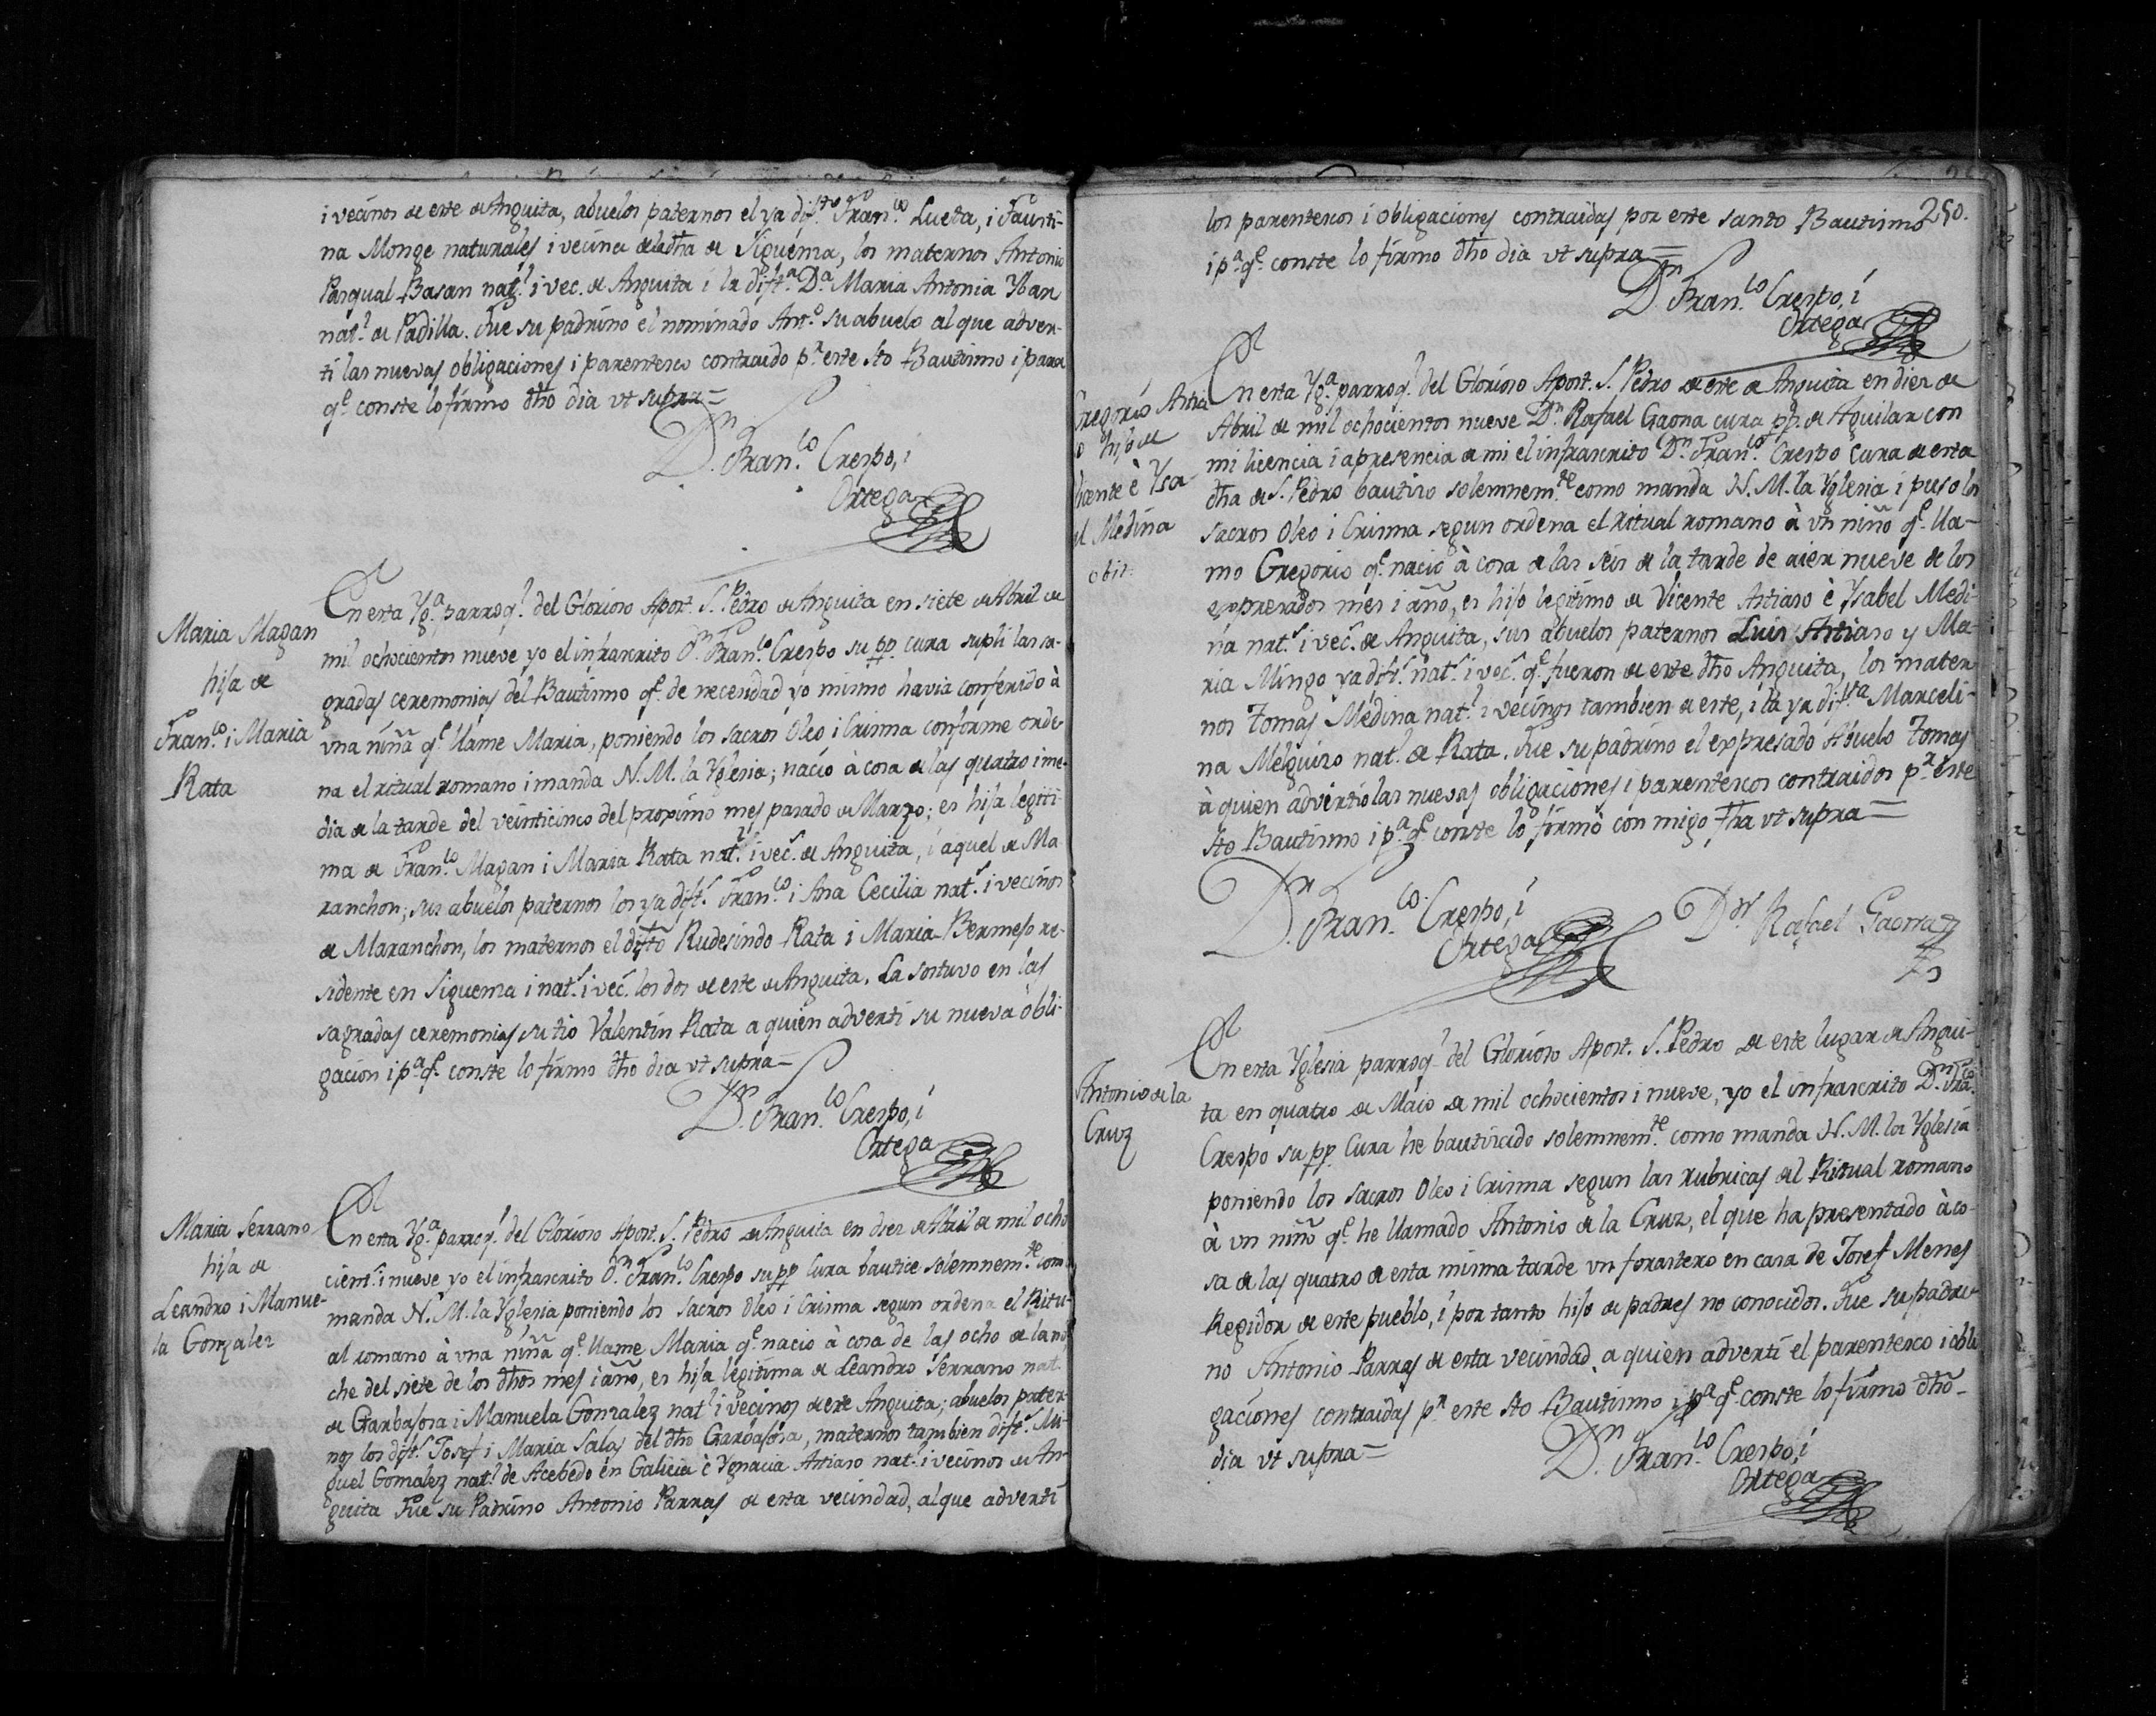 i vecinos de este de Anguita, abuelos paternos el ya dif.to Fran.co Lueta, i Fausti-
na Monge naturales i vecina de la dha de Siguenza, los maternos Antonio
Pasqual Basan nat.l i vec. de Anguita i la dift.a D.a Maria Antonia Yban
nat.l de Padilla. Fue su padrino el nominado Ant.o su abuelo al que adver-
ti las nuevas obligaciones i parentesco contraido p.r este Sto Bautismo i para
q.e conste lo firmo dho dia vt supra=
D.n Fran.co Crespo, i
Ortega
Maria Magan
hija de
Fran.co i Maria
Rata
En esta Yg.a parroq.l del Glorioso Apost. S. Pedro de Anguita en siete de Abril de
mil ochocientos nueve yo el infrascrito D.n Fran.co Crespo su pp. cura supli las sa-
gradas ceremonias del Bautismo q.e de necesidad yo mismo havia conferido à
vna niña q.e llame Maria, poniendo los sacros Oleo i Crisma conforme orde-
na el ritual romano i manda N. M. la Yglesia; nacio à cosa de las quatro i me-
dia de la tarde del veinticinco del proximo mes pasado de Marzo; es hija legiti-
ma de Fran.co Magan i Maria Rata nat.l i vec.s de Anguita, i aquel de Ma-
ranchon; sus abuelos paternos los ya dift.s Fran.co i Ana Cecilia nat.s i vecinos
de Maranchon, los maternos el difto Rudesindo Rata i Maria Bermejo re-
sidente en Siguenza i nat.s i vec.s los dos de este de Anguita. La sostuvo en las
sagradas ceremonias su tio Valentin Rata a quien adverti su nueva obli-
gacion i p.a q.e conste lo firmo dho dia vt supra=
D.n Fran.co Crespo, i
Ortega
Maria Serrano
hija de
Leandro i Manue-
la Gonzalez
En esta Yg.a parroq.l del Glorioso Apost. S. Pedro de Anguita en diez de Abril de mil ocho
cient.s i nueve yo el infrascrito D.n Fran.co Crespo su pp cura bautice solemnem.te como
manda N. M. la Yglesia poniendo los sacros Oleo i Crisma segun ordena el Ritu-
al romano à vna niña q.e llame Maria q.e nacio à cosa de las ocho de la no-
che del siete de los dhos mes i año, es hija legitima de Leandro Serrano nat.
de Garbajosa i Manuela Gonzalez nat.l i vecinos de este Anguita; abuelos pater-
nos los dift.s Josef i Maria Salas del dho Garbajosa, maternos tambien dift.s Mi-
guel Gonzalez nat.l de Acebedo en Galicia è Ygnacia Atiaso nat.l i vecinos de An-
guita Fue su Padrino Antonio Parras de esta vecindad, al que adverti
250.
los parentescos i obligaciones contraidas por este santo Bautismo
i p.a q.e conste lo firmo dho dia vt supra=
D.n Fran.co Crespo, i
Ortega
Gregorio
o hijo de
Vicente è Ysa
el Medina
obit.
En esta Yg.a parroq.l del Glorioso Apost. S. Pedro de este de Anguita en diez de
Abril de mil ochocientos nueve D.n Rafael Gaona cura pp. de Aguilar con
mi licencia i apresencia de mi el infrascrito D.n Fran.co Crespo Cura de esta
dha de S. Pedro bautizo solemnem.te como manda N. M. la Yglesia i puso los
sacros Oleo i Crisma segun ordena el Ritual romano à vn niño q.e lla-
mo Gregorio q.e nacio à cosa de las seis de la tarde de aier nueve de los
expresados mes i año, es hijo legitimo de Vicente Atiaso è Ysabel Medi-
na nat.s i vec.s de Anguita, sus abuelos paternos Luis Atiaso y Ma-
ria Mingo ya dift.s nat.s i vec.s q.e fueron de este dho Anguita, los mater-
nos Tomas Medina nat.l i vecinos tambien de este, i la ya dif.ta Marceli-
na Melguizo nat.l de Rata. Fue su padrino el expresado Abuelo Tomas
à quien advirtio las nuevas obligaciones i parentescos contraidos p.r este
Sto Bautismo i p.a q.e conste lo firmò con migo fha vt supra=
D.n Fran.co Crespo, i
Ortega
D.n Rafael Gaona
Antonio de la
Cruz
En esta Yglesia parroq.l del Glorioso Apost. S. Pedro de este lugar de Angui-
ta en quatro de Maio de mil ochocientos i nueve, yo el infrascrito D.n Fra.co
Crespo su pp. Cura he bautizado solemnem.te como manda N. M. la Yglesia
poniendo los sacros Oleo i Crisma segun las rubricas del Ritual romano
à vn niño q.e he llamado Antonio de la Cruz, el que ha presentado à co-
sa de las quatro de esta misma tarde vn forastero en casa de Josef Menes
Regidor de este pueblo, i por tanto hijo de padres no conocidos. Fue su padri-
no Antonio Parras de esta vecindad a quien adverti el parentesco i obli
gaciones contraidas p.r este Sto Bautismo i p.a q.e conste lo firmo dho
dia vt supra=
D.n Fran.co Crespo, i
Ortega